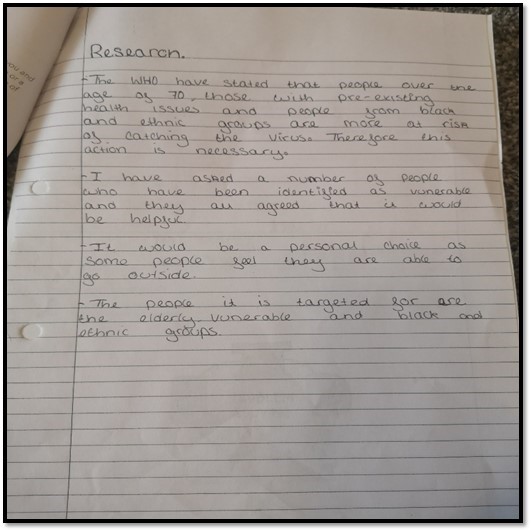 you and
or a
of
Research.
- The WHO have stated that people over the
age of 70, those with pre-existing
health issues and people from black
and ethnic groups are more at risk
of catching the virus. Therefore this
action is necessary.
- I have asked a number of people
who have been identified as vunerable
and they all agreed that it would
be helpful.
- It would be a personal choice as
some people feel they are able to
go outside.
- The people it is targeted for are
the elderly, vunerable and black and
ethnic groups.